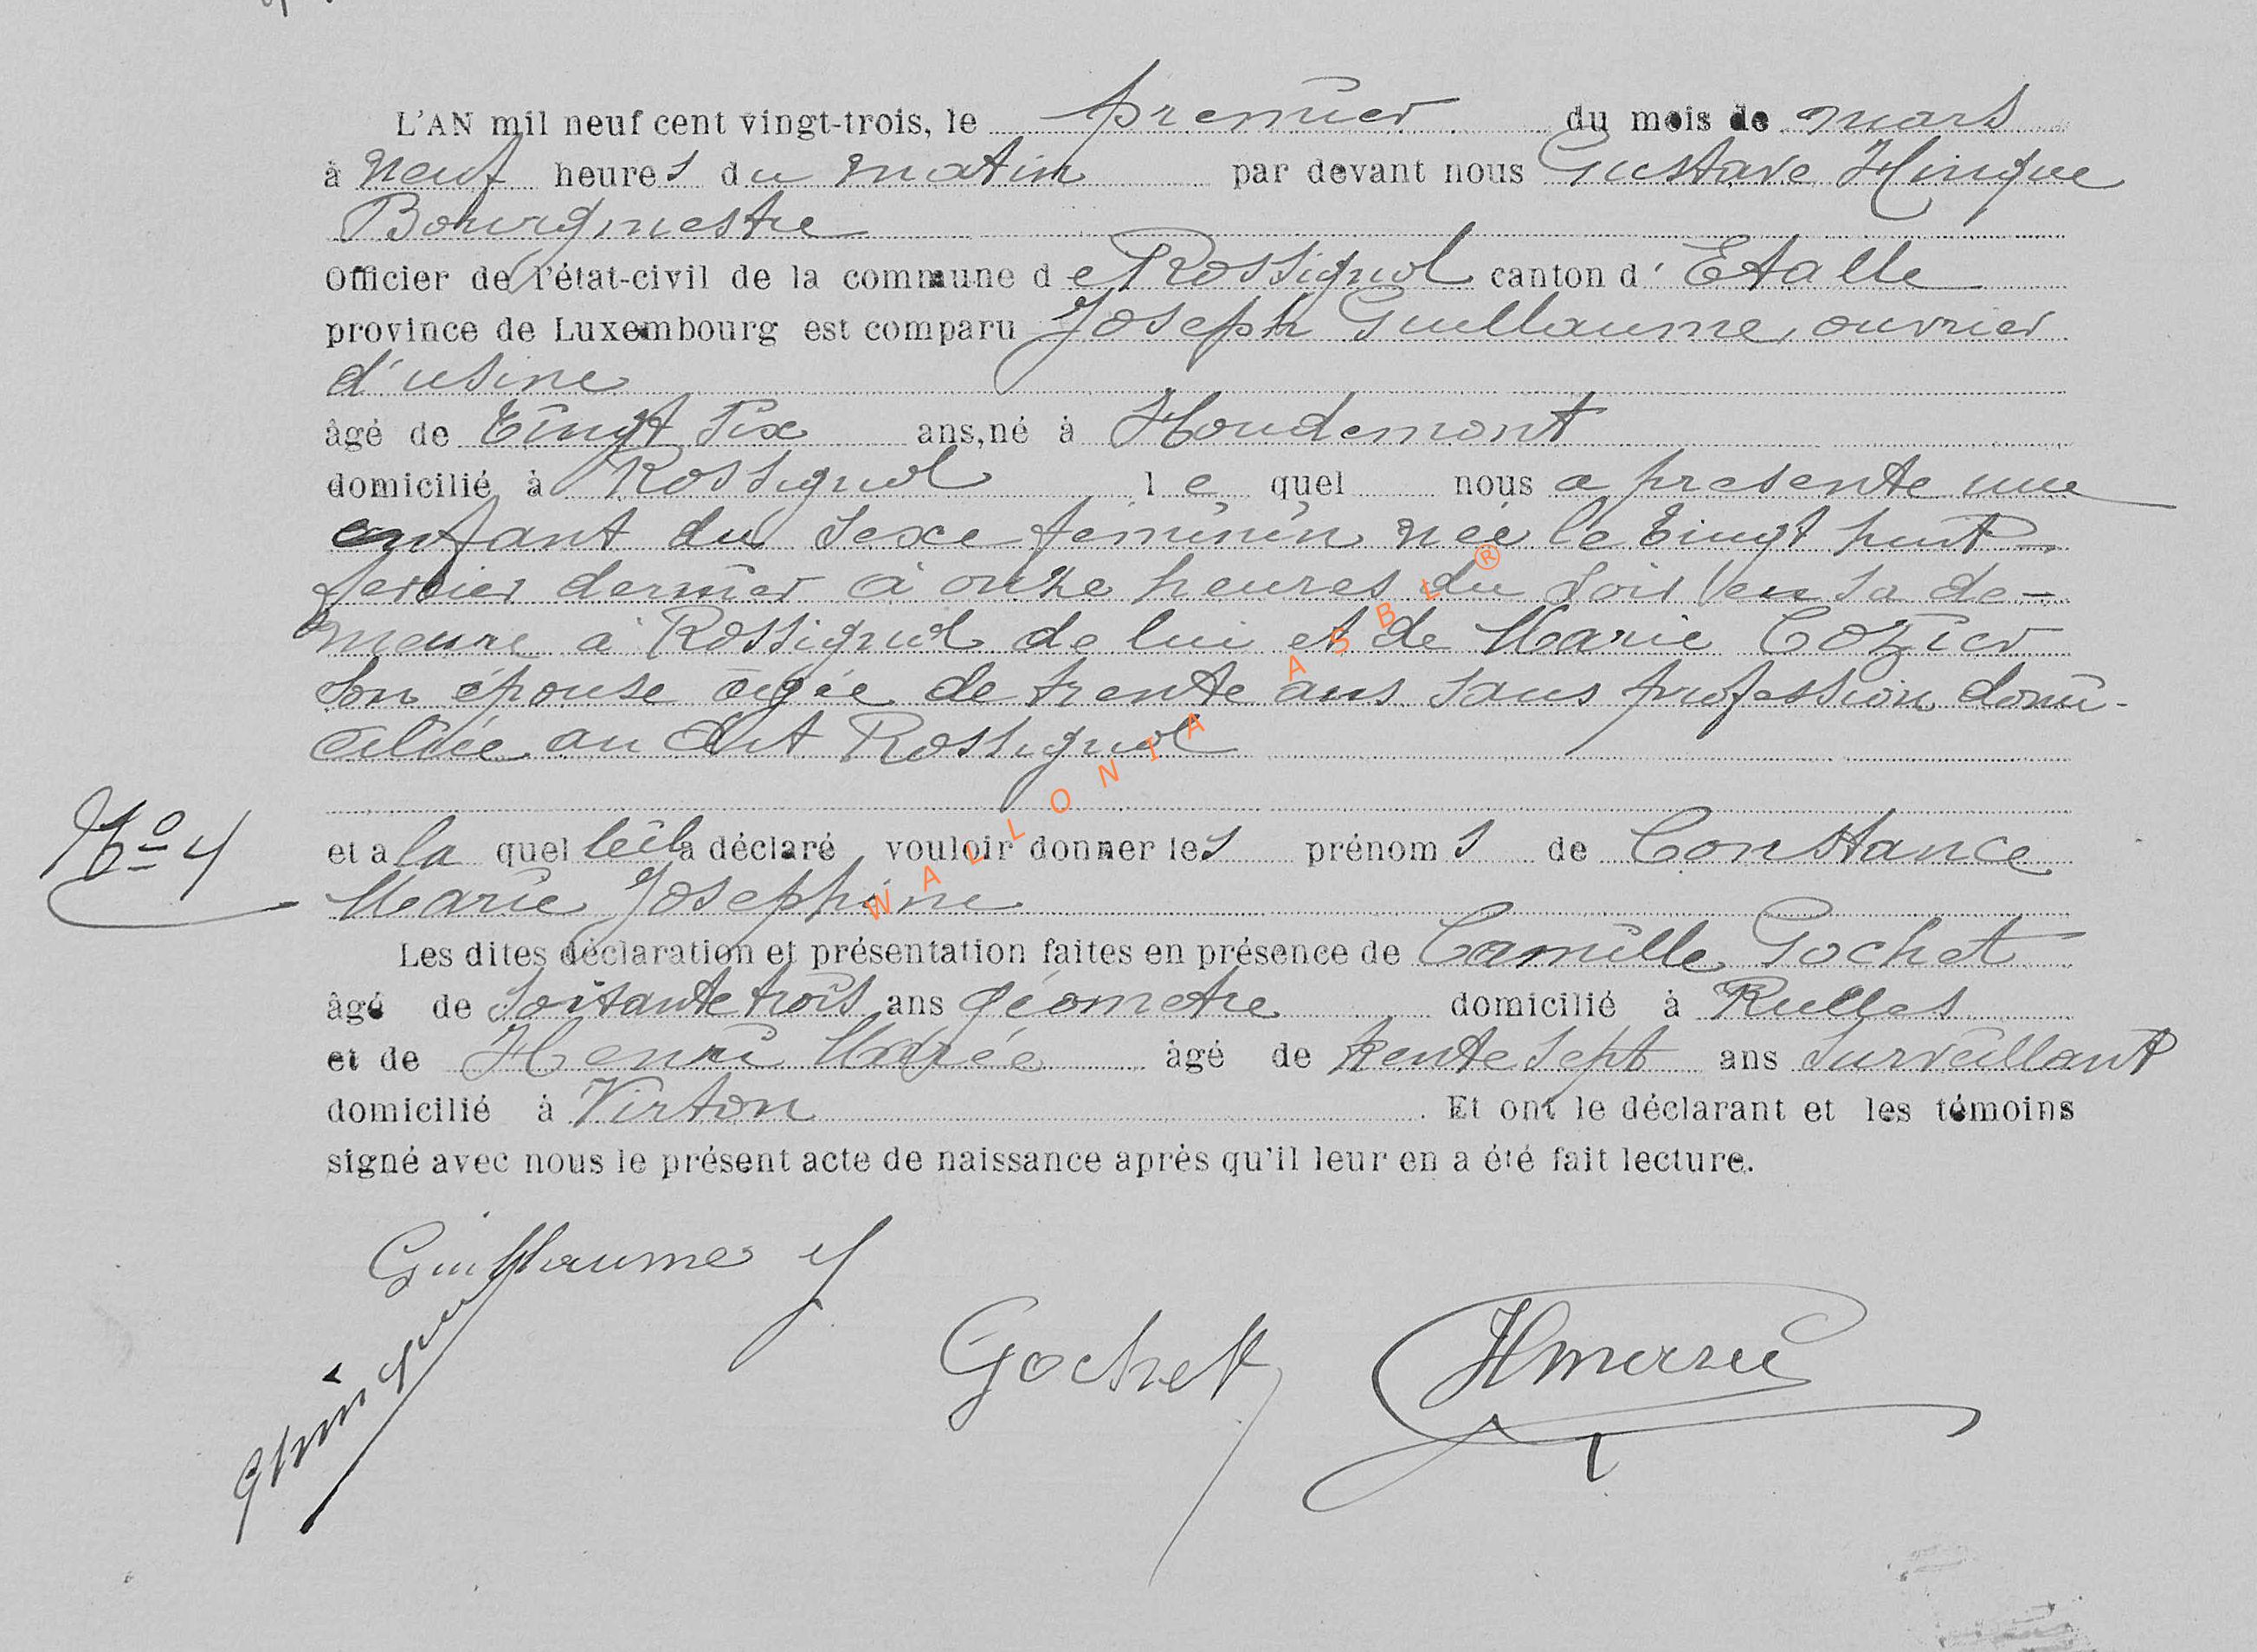 L'AN mil neuf cent vingt-trois, le premier du mois de mars
à neuf heures du matin par devant nous Gustave Hinque
Bourgmestre
Officier de l'état-civil de la commune de Rossignol canton d'Etalle
province de Luxembourg est comparu Joseph Guillaume, ouvrier
d'usine
âgé de Vingt Six ans, né à Houdemont
domicilié à Rossignol lequel nous a presente une
enfant du sexe feminin née le Vingt huit
fevrier dernier à onze heures du soir en sa de-
meure à Rossignol de lui et de Marie Cozier
son épouse âgée de trente ans sans profession domi-
ciliée au dit Rossignol
No 4
et a la quelle il a déclaré vouloir donner les prénoms de Constance
Marie Josephine
Les dites déclaration et présentation faites en présence de Camille Gochet
âgé de soixante trois ans géometre domicilié à Rulles
et de Henri Marée âgé de trente sept ans surveillant
domicilié à Virton. Et ont le déclarant et les témoins
signé avec nous le présent acte de naissance après qu'il leur en a été fait lecture.
Guillaume J
GHinque
Gochet
HMarée
WALLONIA ASBL ®